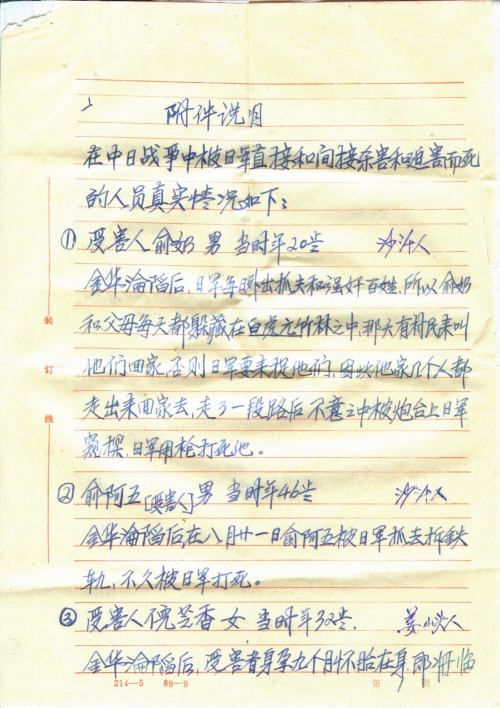 附件说明
在中日战争中被日军直接和间接杀害和迫害而死
的人员真实情况如下：
① 受害人俞奶 男 当时年20岁 沙汁人
金华沦陷后，日军每日出抓夫和强奸百姓，所以俞奶
和父母每天都躲藏在白虎竹林之中，那天有村民来叫
他们回家，否则日军要来捉他们，因此他家几个人都
走出来回家去，走了一段路后不意之中被炮台上日军
窥探，日军用枪打死他。
② 俞阿五[受害人]男 当时年46岁 沙汁人
金华沦陷后，在八月廿一日俞阿五被日军抓去拆铁
轨，不久被日军打死。
③ 受害人倪芝香 女 当时年32岁. 人
金华沦陷后，受害者身孕九个月怀胎在身，即将临
装
订
线
214—5 89—9
第 页